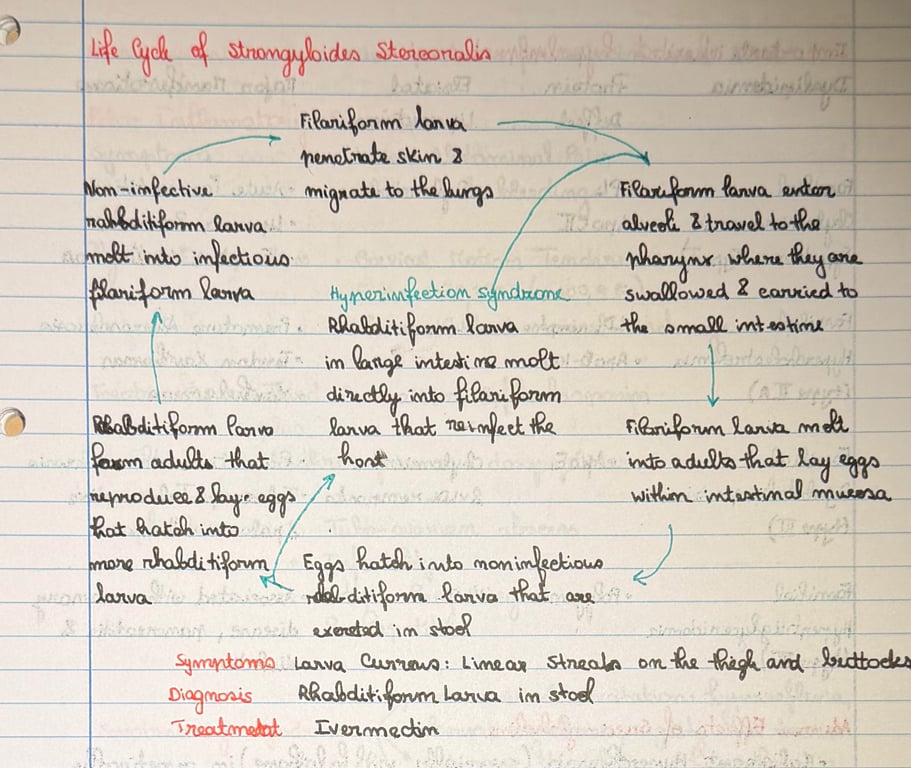 Life Cycle of Strongyloides Stercoralis
Filariform larva
penetrate skin &
migrate to the lungs
Filariform larva enter
alveoli & travel to the
pharynx where they are
swallowed & carried to
the small intestine
Filariform larva molt
into adults that lay eggs
within intestinal mucosa
Eggs hatch into noninfectious
rhabditiform larva that are
excreted in stool
Rhabditiform larva
form adults that
reproduce & lay eggs
that hatch into
more rhabditiform
larva
Non-infective
rahbditiform larva
molt into infectious
filariform larva
Hyperinfection syndrome
Rhabditiform larva
in large intestine molt
directly into filariform
larva that reinfect the
host
Symptoms Larva Currens: Linear Streaks on the thigh and buttocks
Diagnosis Rhabditiform Larva in stool
Treatment Ivermectin